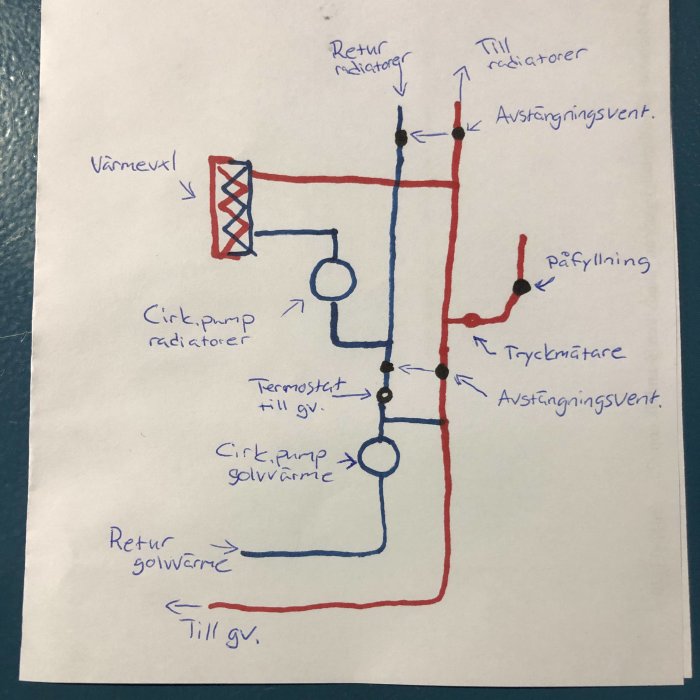 Retur
radiatorer
Till
radiatorer
Avstängningsvent.
Värmevxl
påfyllning
Cirk.pump
radiatorer
Tryckmätare
Termostat
till gv.
Avstängningsvent.
Cirk.pump
golvvärme
Retur
golvvärme
Till gv.